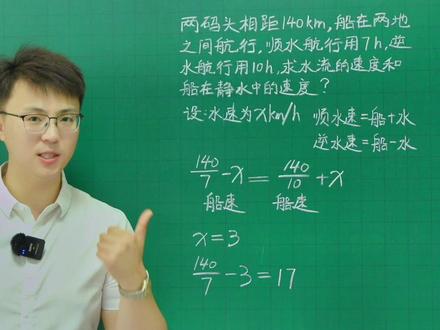 两码头相距140km,船在两地
之间航行,顺水航行用7h,逆
水航行用10h,求水流的速度和
船在静水中的速度?
设:水速为xkm/h 顺水速=船+水
逆水速=船-水
140/7-x=140/10+x
船速 船速
x=3
140/7-3=17